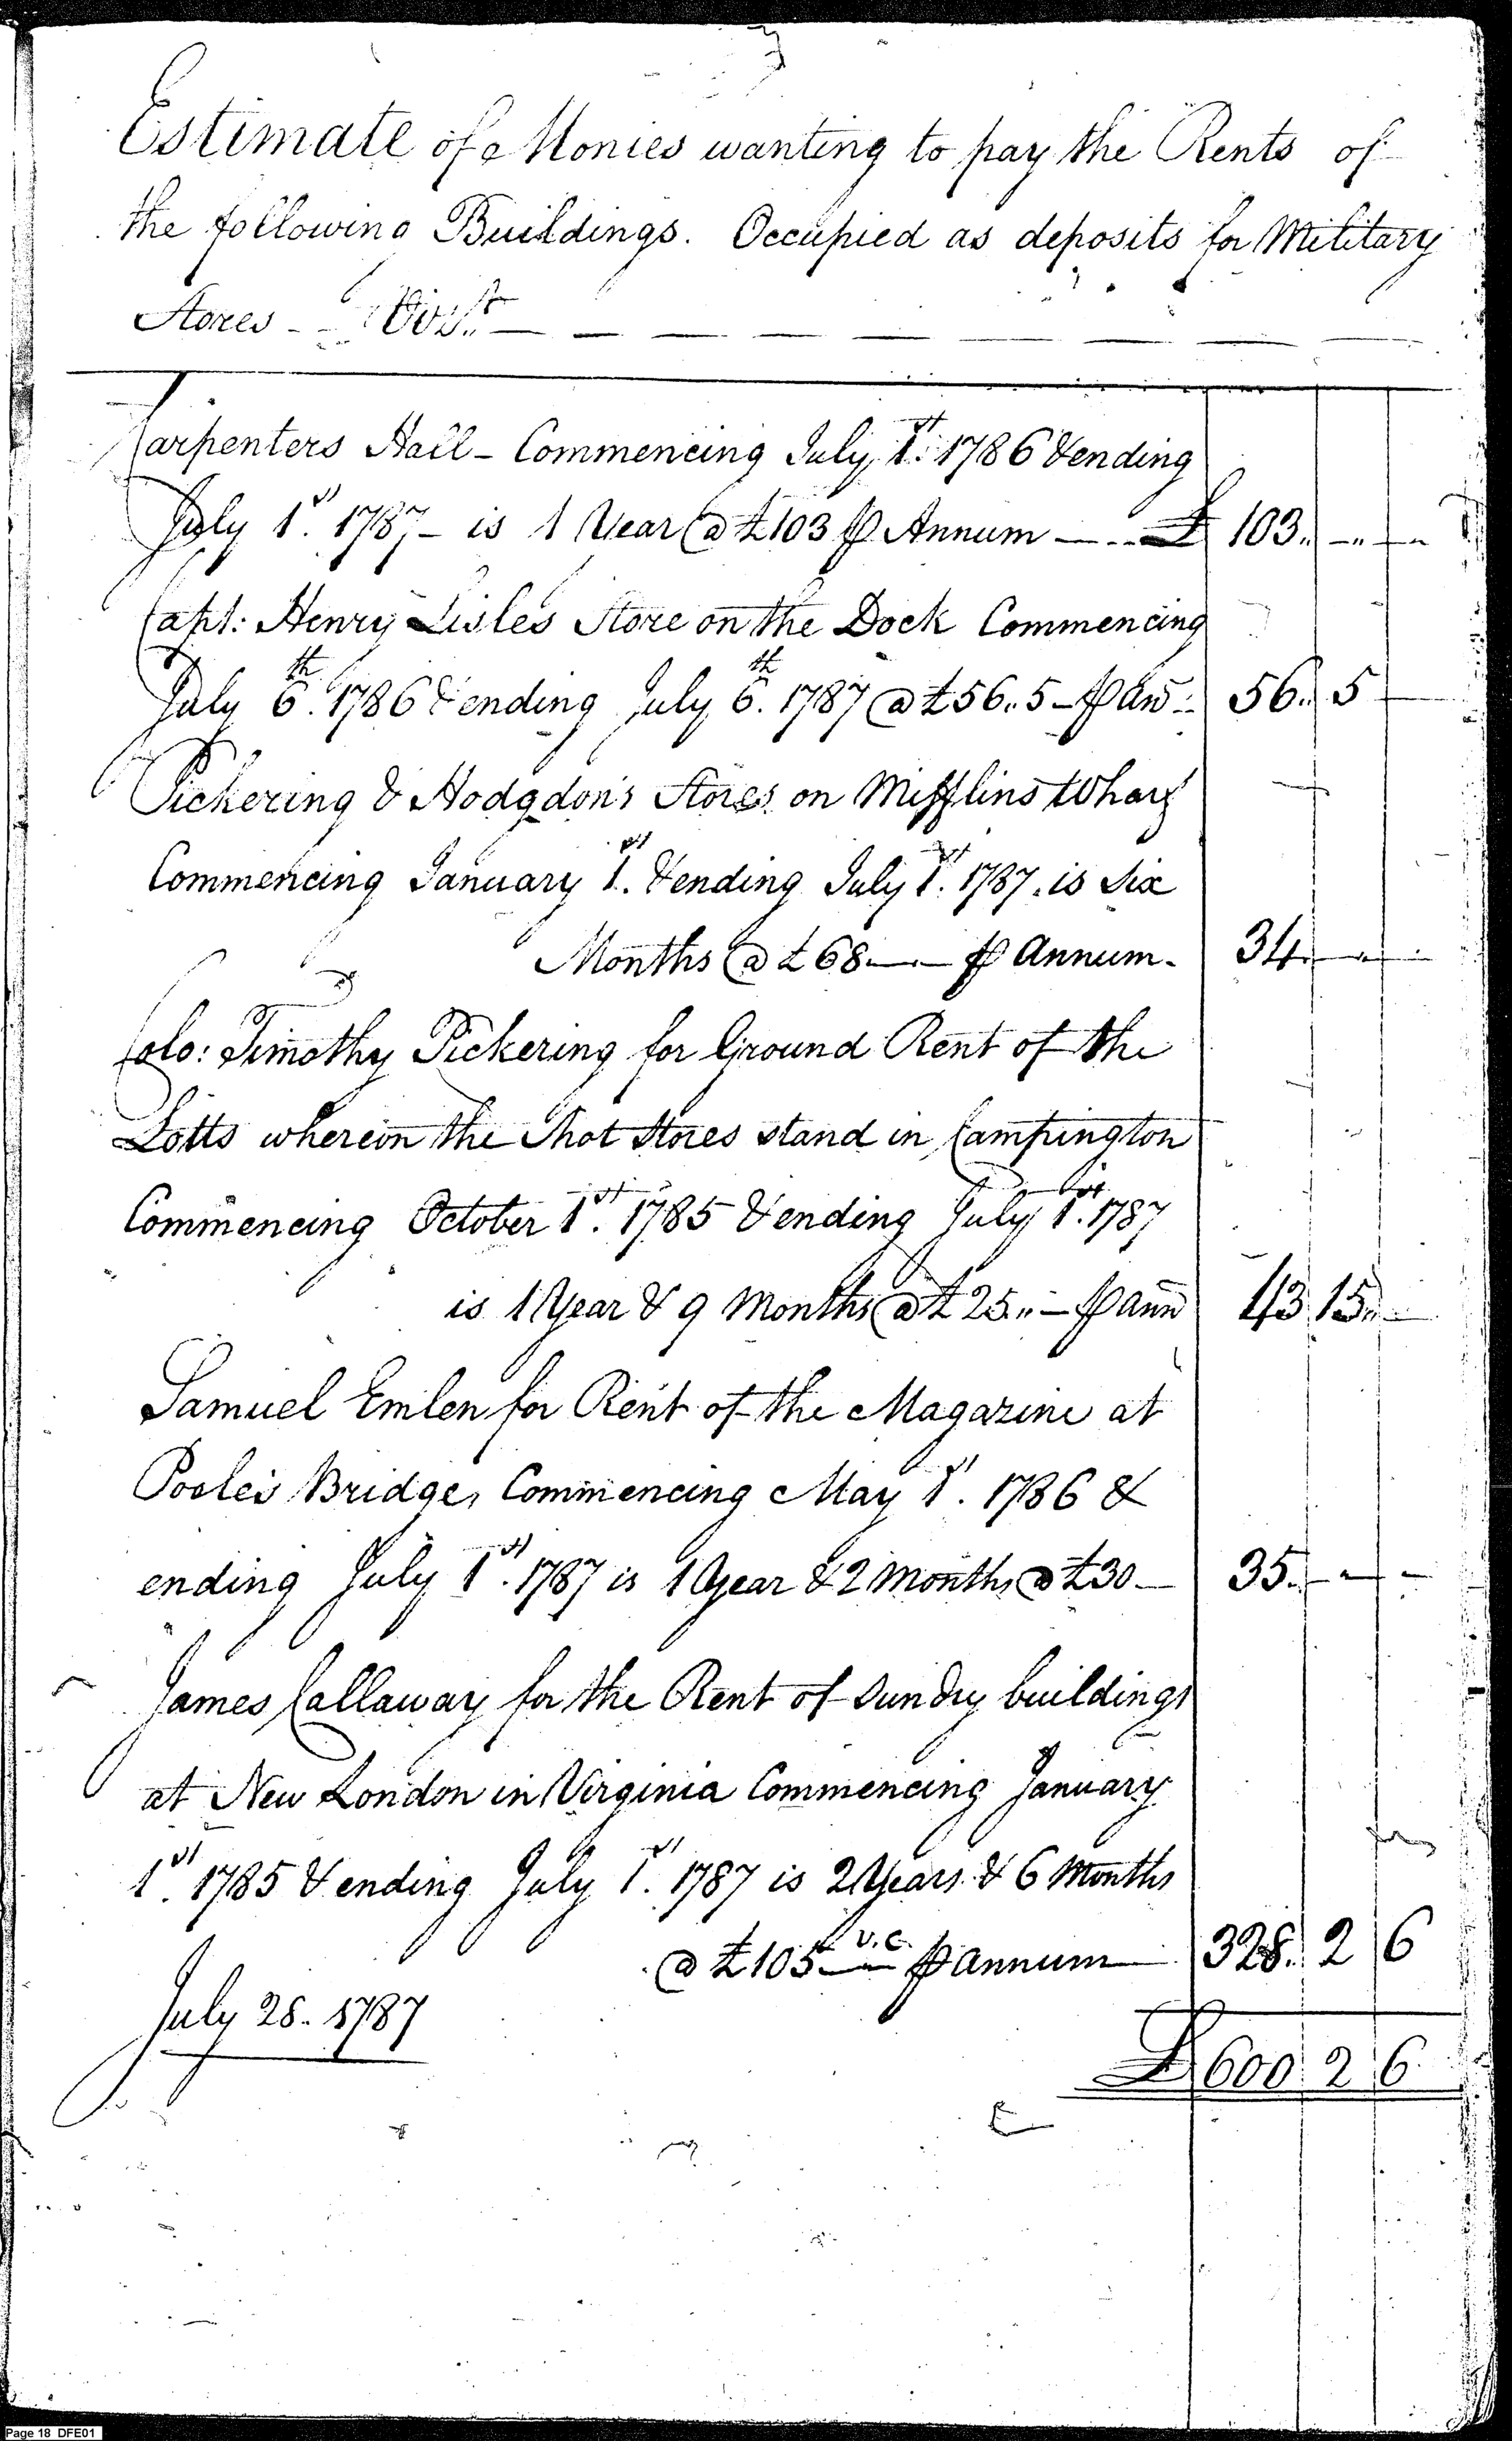 Estimate of Monies wanting to pay the Rents of
the following Buildings. Occupied as deposits for Military
Stores - Vizt.
Carpenters Hall - Commencing July 1st. 1786 & ending
July 1st. 1787 - is 1 Year @ £103 ⅌ Annum — £ 103.. -.. -..
Capt: Henry Lisles Store on the Dock Commencing
July 6th. 1786 & ending July 6th. 1787 @ £56..5 - ⅌ an̄: 56.. 5 -
Pickering & Hodgdon's Stores on Mifflins Wharf
Commencing January 1st. & ending July 1st. 1787. is Six
Months @ £68.—.— ⅌ annum. 34.. - -
Colo: Timothy Pickering for Ground Rent of the
Lotts whereon the Shot Stores stand in Campington
Commencing October 1st. 1785 & ending July 1st. 1787
is 1 Year & 9 Months @ £25.. - ⅌ ann̄ 43 15.. -
Samuel Emlen for Rent of the Magazine at
Pooles Bridge, Commencing May 1st. 1786 &
ending July 1st. 1787 is 1 Year & 2 Months @ £30 — 35.. - -
James Callaway for the Rent of Sundry buildings
at New London in Virginia Commencing January
1st. 1785 & ending July 1st. 1787 is 2 Years & 6 Months
@ £105 — v.c. ⅌ annum 328.. 2 6
July 28. 1787
£ 600 2 6
Page 18 DFE01